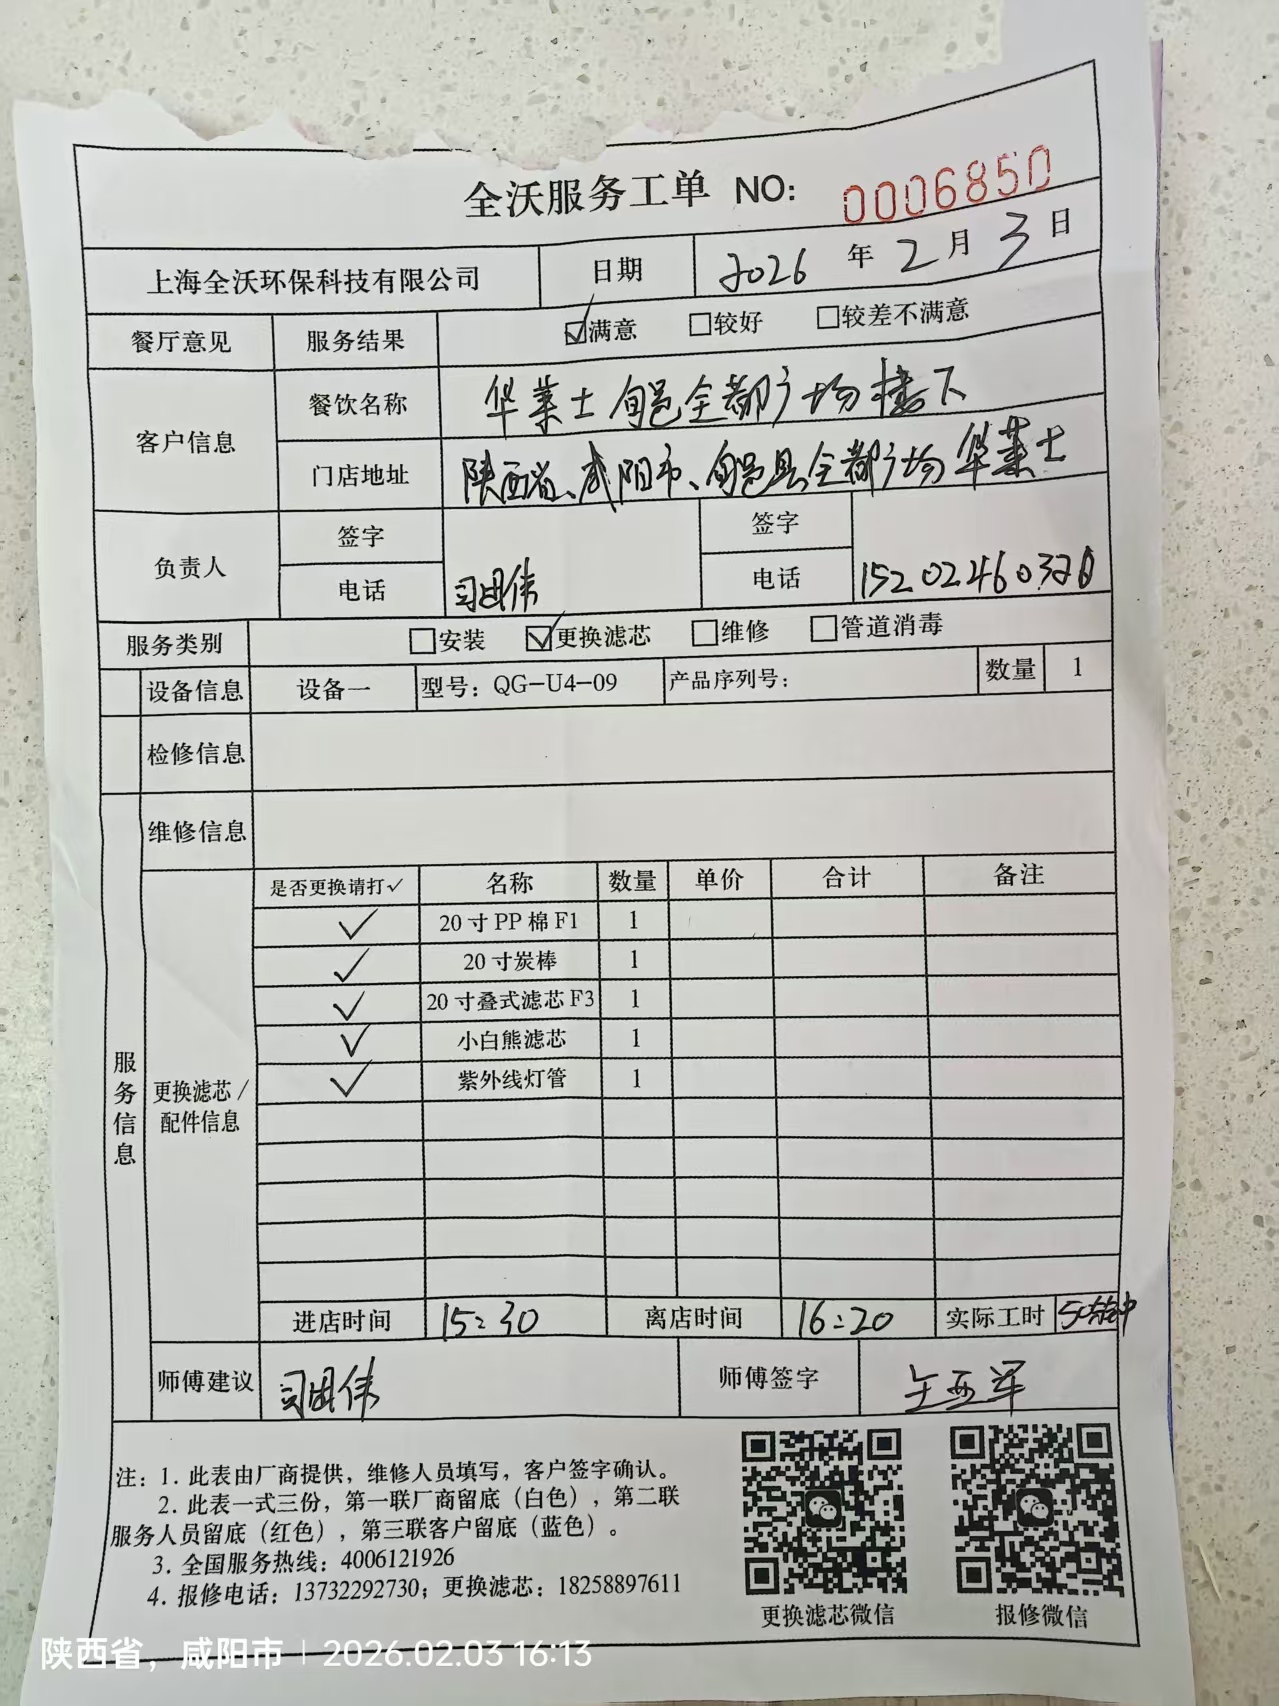 全沃服务工单 NO: 0006850
上海全沃环保科技有限公司 日期 2026 年 2 月 3 日
餐厅意见 服务结果 ☑满意 □较好 □较差不满意
客户信息 餐饮名称 华莱士旬邑全都广场楼下
门店地址 陕西省、咸阳市、旬邑县全都广场华莱士
负责人 签字 签字
电话 电话 15202460326
服务类别 □安装 ☑更换滤芯 □维修 □管道消毒
设备信息 设备一 型号：QG-U4-09 产品序列号： 数量 1
检修信息
维修信息
服务信息
更换滤芯/
配件信息
是否更换请打✓ 名称 数量 单价 合计 备注
✓ 20寸PP棉F1 1
✓ 20寸炭棒 1
✓ 20寸叠式滤芯F3 1
✓ 小白熊滤芯 1
✓ 紫外线灯管 1
进店时间 15:30 离店时间 16:20 实际工时 50分钟
师傅建议 师傅签字 王亚军
注：1. 此表由厂商提供，维修人员填写，客户签字确认。
2. 此表一式三份，第一联厂商留底（白色），第二联
服务人员留底（红色），第三联客户留底（蓝色）。
3. 全国服务热线：4006121926
4. 报修电话：13732292730；更换滤芯：18258897611
更换滤芯微信 报修微信
陕西省，咸阳市 | 2026.02.03 16:13